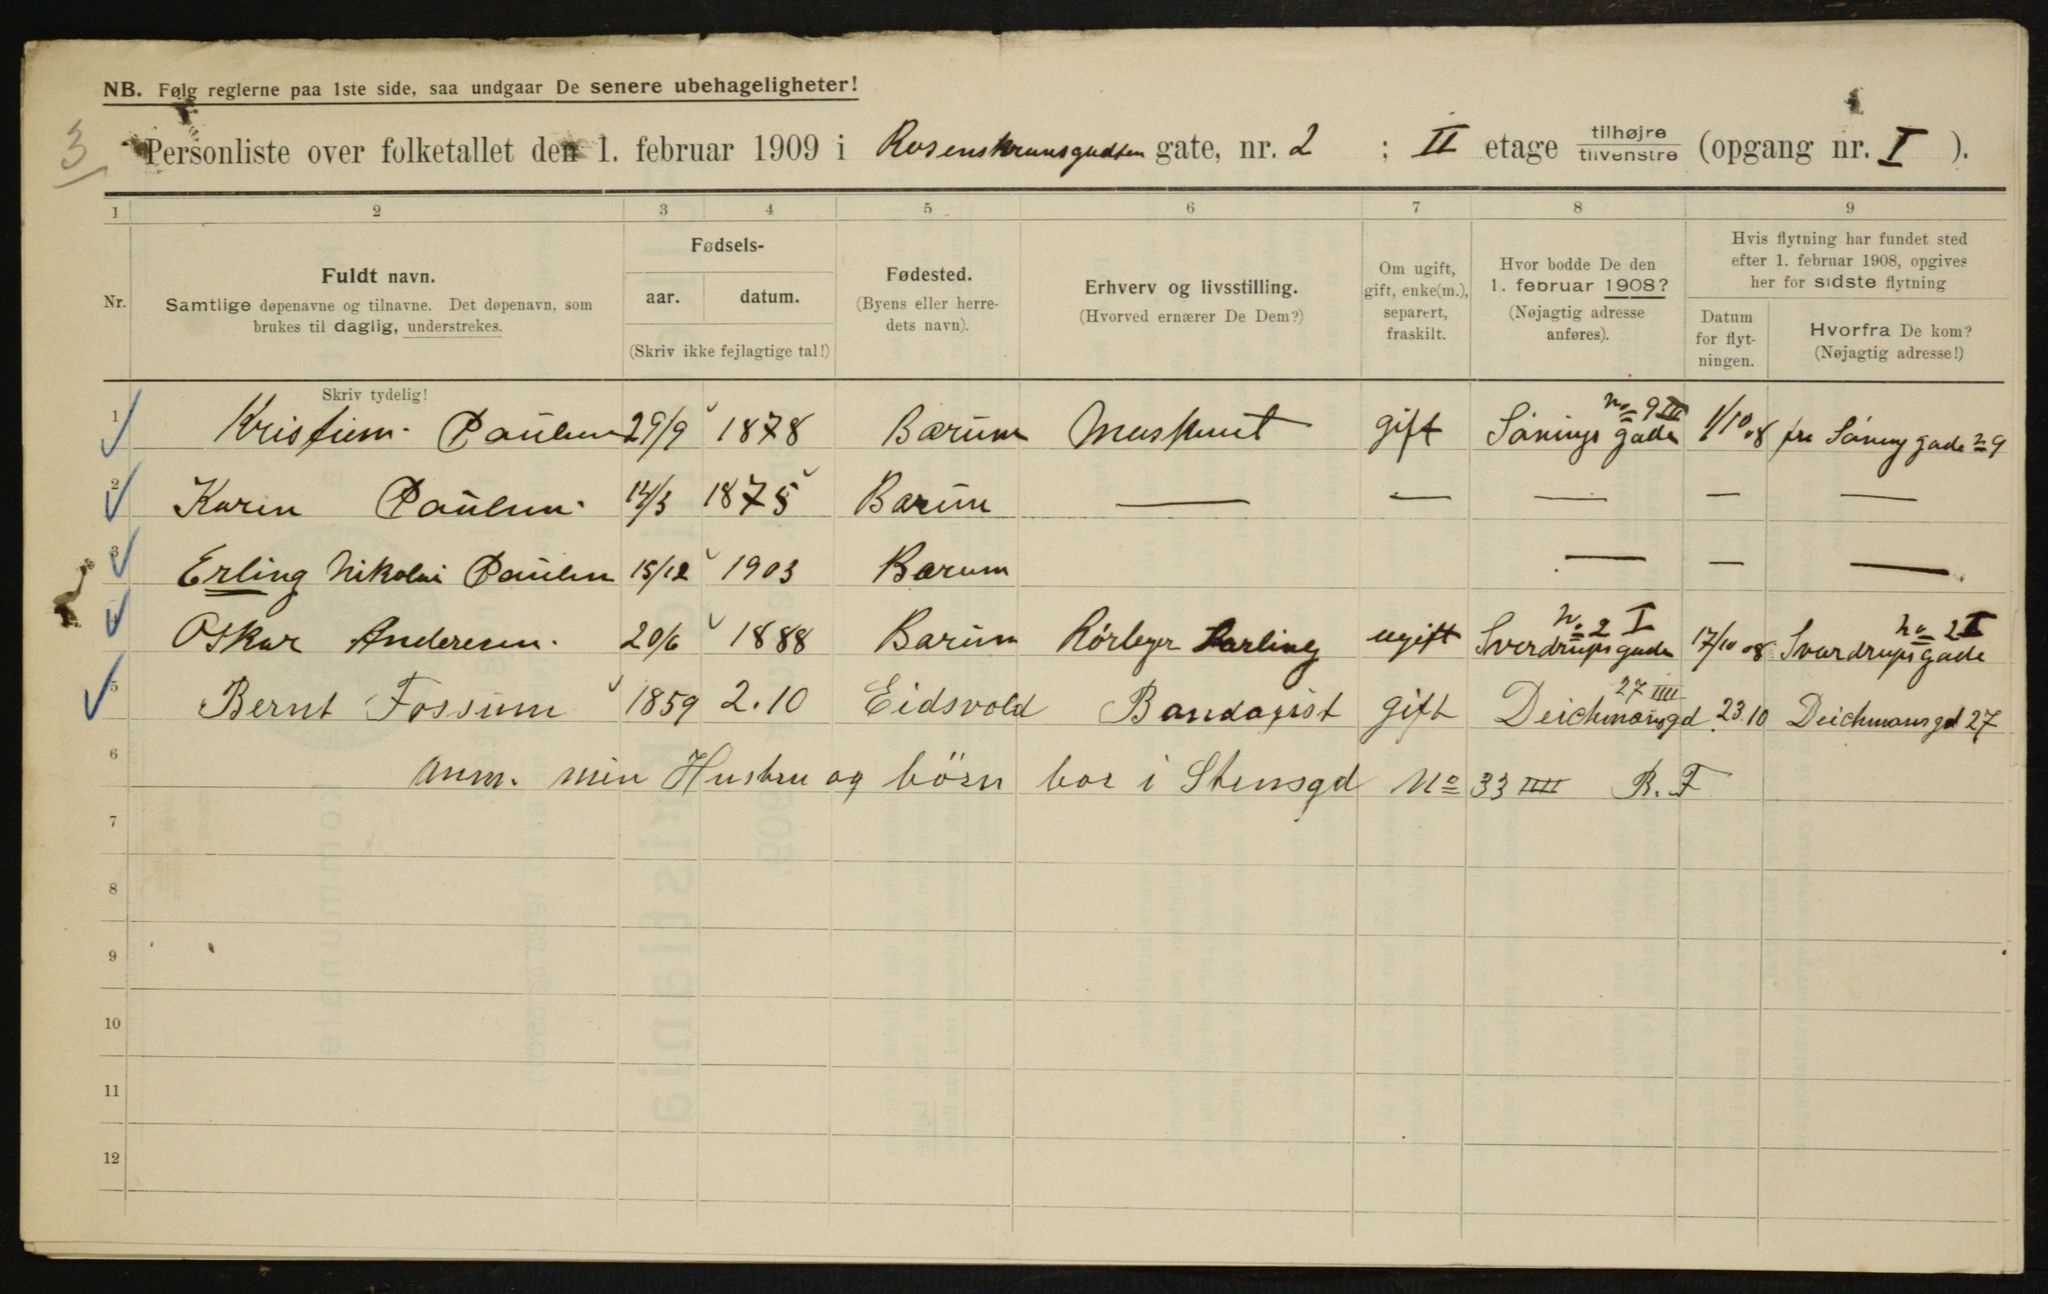 NB. Følg reglerne paa 1ste side, saa undgaar De senere ubehageligheter!
3
Personliste over folketallet den 1. februar 1909 i Rosenskransgadten gate, nr. 2 ; II etage tilhøjre tilvenstre (opgang nr. I ).
1 2 3 4 5 6 7 8 9
Nr.
Fuldt navn.
Samtlige døpenavne og tilnavne. Det døpenavn, som
brukes til daglig, understrekes.
Skriv tydelig!
Fødsels-
aar. datum.
(Skriv ikke fejlagtige tal!)
Fødested.
(Byens eller herre-
dets navn).
Erhverv og livsstilling.
(Hvorved ernærer De Dem?)
Om ugift,
gift, enke(m.),
separert,
fraskilt.
Hvor bodde De den
1. februar 1908?
(Nøjagtig adresse
anføres).
Hvis flytning har fundet sted
efter 1. februar 1908, opgives
her for sidste flytning
Datum
for flyt-
ningen.
Hvorfra De kom?
(Nøjagtig adresse!)
1 Paulsen 29/9 1878 Bærum gift no 9 III gade 1/10 08 fra gade no 9
2 Karen Paulsen 14/3 1875 Bærum — — — — —
3 Erling Nikolai Paulsen 15/12 1903 Bærum — — —
4 Oskar Andersen. 20/6 1888 Bærum Rörleger ugift Sverdrupsgade no 2 I 17/10 08 Sverdrupsgade no 2 I
5 Bernt Fossum 1859 2.10 Eidsvold Bandagist gift Deichmansgd 27 IIII 23.10 Deichmansgd 27
6 Anm. min Hustru og börn bor i Stensgd No 33 IIII B. F
7
8
9
10
11
12